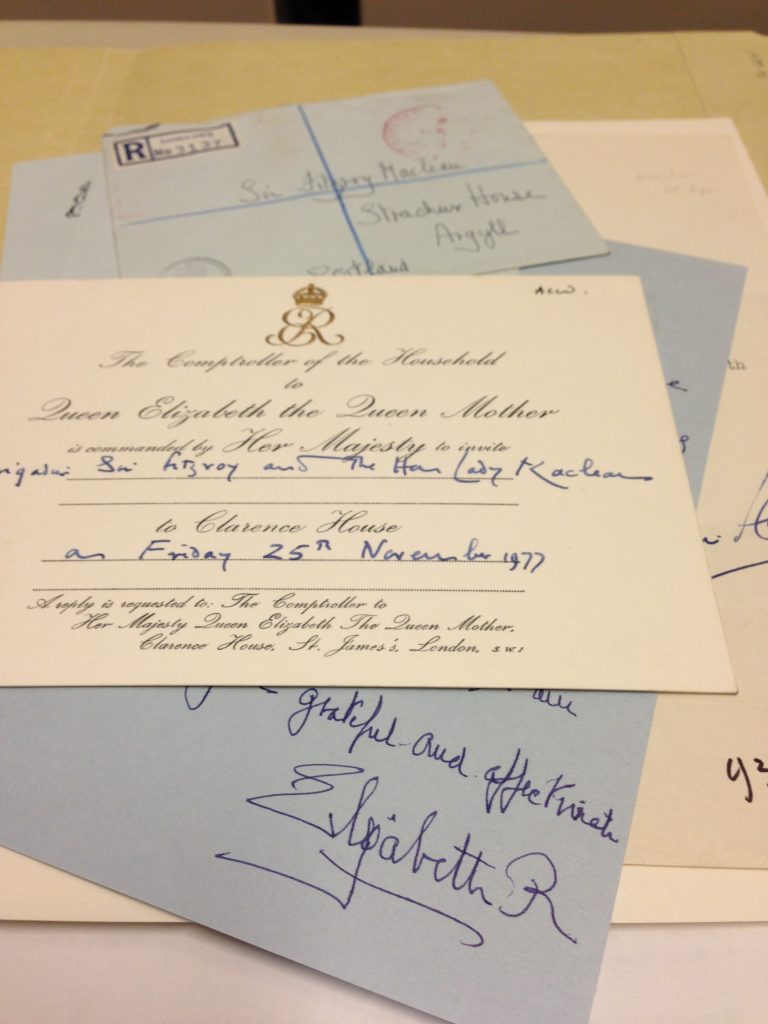 R
No 3127
Sir Fitzroy Maclean
Strachur House
Argyll
Scotland
ER
The Comptroller of the Household
to
Queen Elizabeth the Queen Mother
is commanded by Her Majesty to invite
Sir Fitzroy and The Hon Lady Maclean
to Clarence House
on Friday 25th November 1977
A reply is requested to: The Comptroller to
Her Majesty Queen Elizabeth The Queen Mother,
Clarence House, St. James's, London, S.W.1
th
grateful and affectionate
Elizabeth R